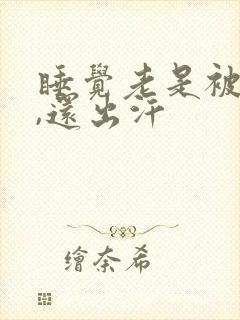 睡覺老是被
,還出汗
繪奈希